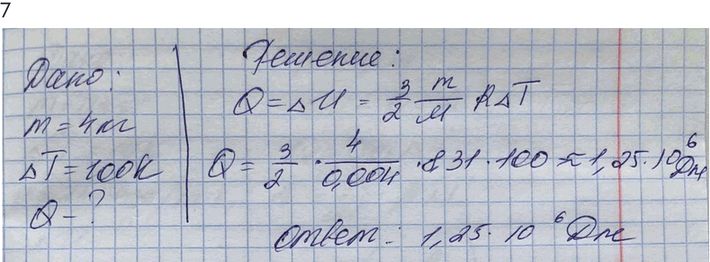 7
Дано:
m = 4 кг
ΔT = 100K
Q - ?
Решение:
Q = ΔU = 3/2 m/M RΔT
Q = 3/2 · 4/0,004 · 8 31 · 100 ≈ 1,25 · 10⁶ Дж
Ответ: 1,25 · 10⁶ Дж